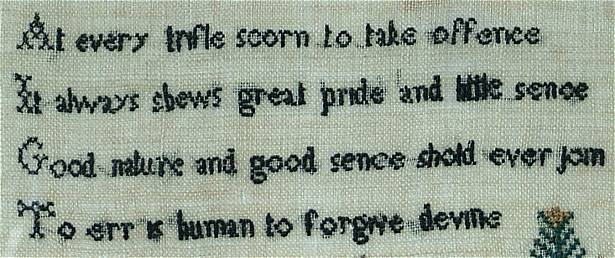 At every trifle scorn to take offence
It always shews great pride and little sence
Good nature and good sence shold ever join
To err is human to forgive devine